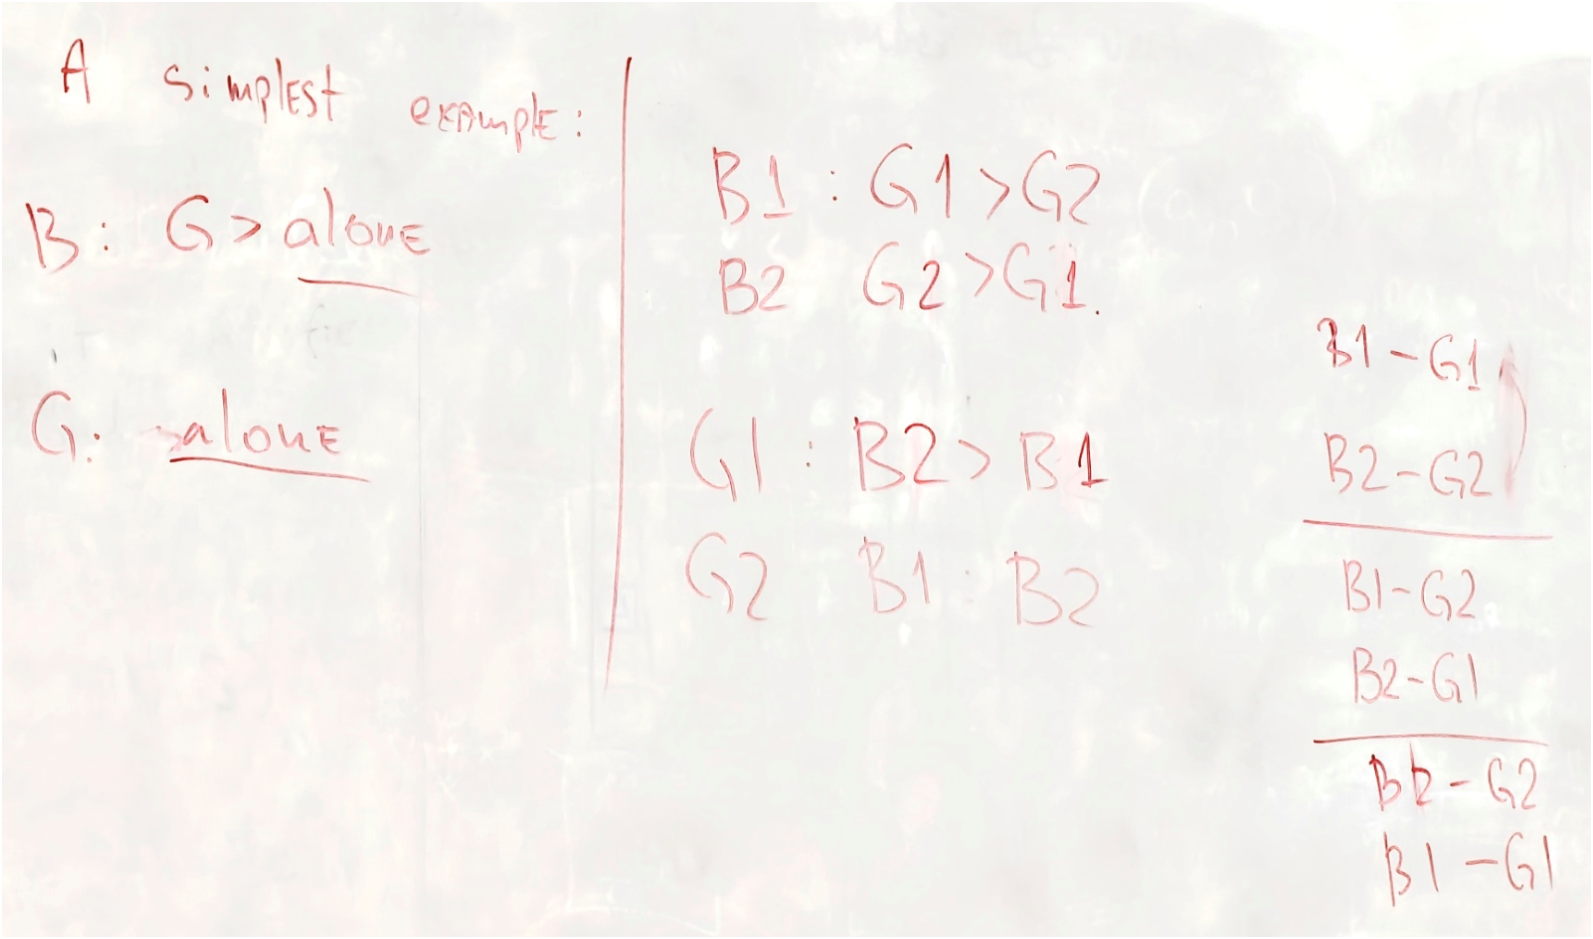 A simplest example:
B: G > alone
G: alone
B1 : G1 > G2
B2 G2 > G1.
G1 : B2 > B1
G2 B1 : B2
B1 - G1
B2 - G2
B1 - G2
B2 - G1
B2 - G2
B1 - G1